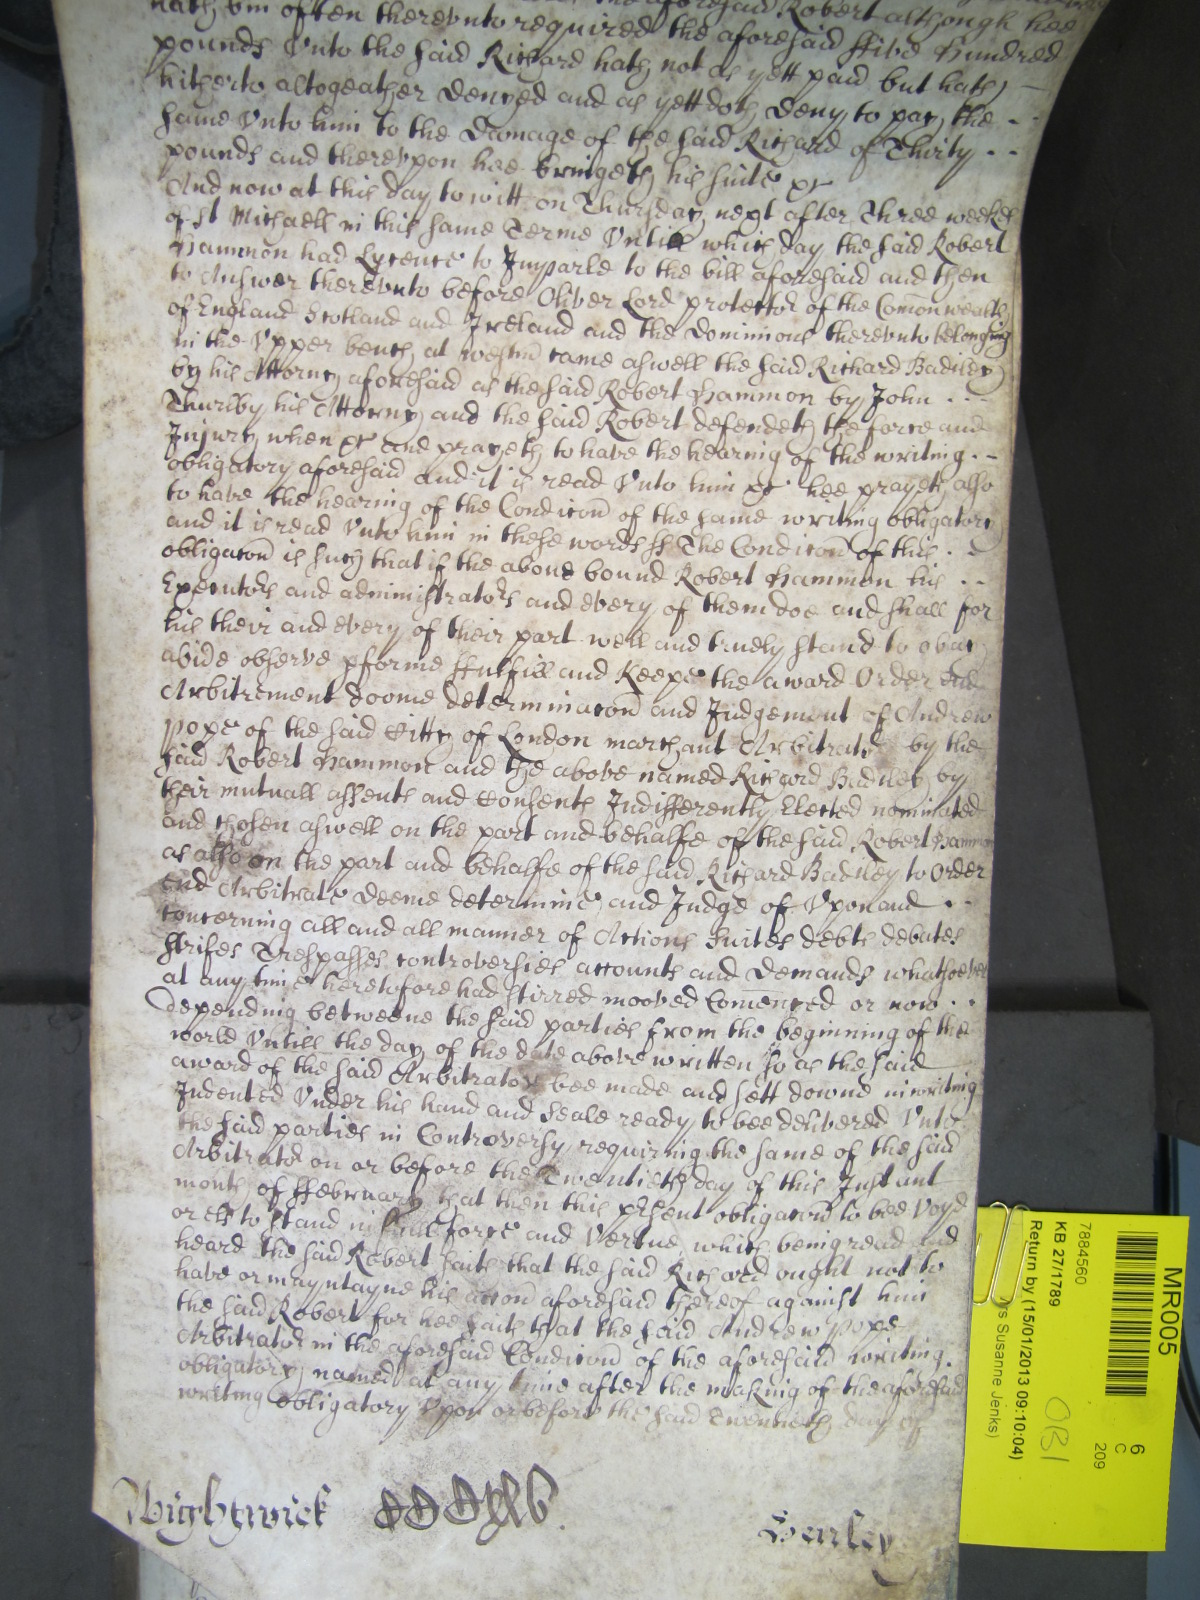 hath bin often therevnto required the aforesaid ffive Hundred
pounds Vnto the said Richard hath not as yett paid but hath
hitherto altogeather denyed and as yett doth deny to pay the
same Vnto him to the Damage of the said Richard of Thirty
pounds and therevpon hee bringeth his suite &c
And now at this day to witt on Thursday next after Three weekes
of St Michaell in this same Terme Vntill which day the said Robert
Hammon had Lycence to Imparle to the bill aforesaid and then
to Answer therevnto before Oliver Lord protector of the Comonwealth
of England Scotland and Ireland and the Dominions therevnto belonging
in the Vpper bench at westmr came aswell the said Richard Badiley
by his Attorny aforesaid as the said Robert Hammon by John
Thurlby his Attorny and the said Robert defendeth the force and
Injury when &c and prayeth to have the hearing of the writing
obligatory aforesaid and it is read Vnto him &c hee prayeth also
to have the hearing of the Condicon of the same writing obligatory
and it is read Vnto him in these words ss The Condicon of this
obligacon is such that if the above bound Robert Hammon his
Executors and administrators and every of them doe and shall for
his their and every of their part well and truely stand to obay
abide observe pforme ffulfill and Keepe the award Order End
Arbitrement doome determinacon and Judgement of Andrew
Pope of the said Citty of London marchant Arbitrator by the
said Robert Hammon and the above named Richard Badiley by
their mutuall assents and Consents Indifferently Elected nominated
and chosen aswell on the part and behalfe of the said Robert Hammon
as also on the part and behalfe of the said Richard Badiley to Order
End Arbitrate Deeme determine and Judge of Vpon and
concerning all and all manner of Actions Suites debts debates
strifes Trespasses controversies accounts and Demands whatsoever
at any time heretofore had stirred mooved Comenced or now
depending betweene the said parties from the beginning of the
world Vntill the day of the date above written so as the said
award of the said Arbitrator bee made and sett downe in writing
Indented Vnder his hand and Seale ready to bee delivered Vnto
the said parties in Controversy requiring the same of the said
Arbitrator on or before the Twentieth day of this Instant
month of ffebruary that then this psent obligacon to bee Voyd
or els to stand in full force and Vertue which being read and
heard the said Robert saith that the said Richard ought not to
have or mayntayne his accon aforesaid thereof against him
the said Robert for hee saith that the said Andrew Pope
Arbitrator in the aforesaid Condicon of the aforesaid writing
obligatory named at any time after the making of the aforesaid
writing obligatory Vpon or before the said Twentieth day of
Wightwick
MR005
6
C
209
7884560
KB 27/1789
Return by (15/01/2013 09:10:04)
Susanne Jenks)